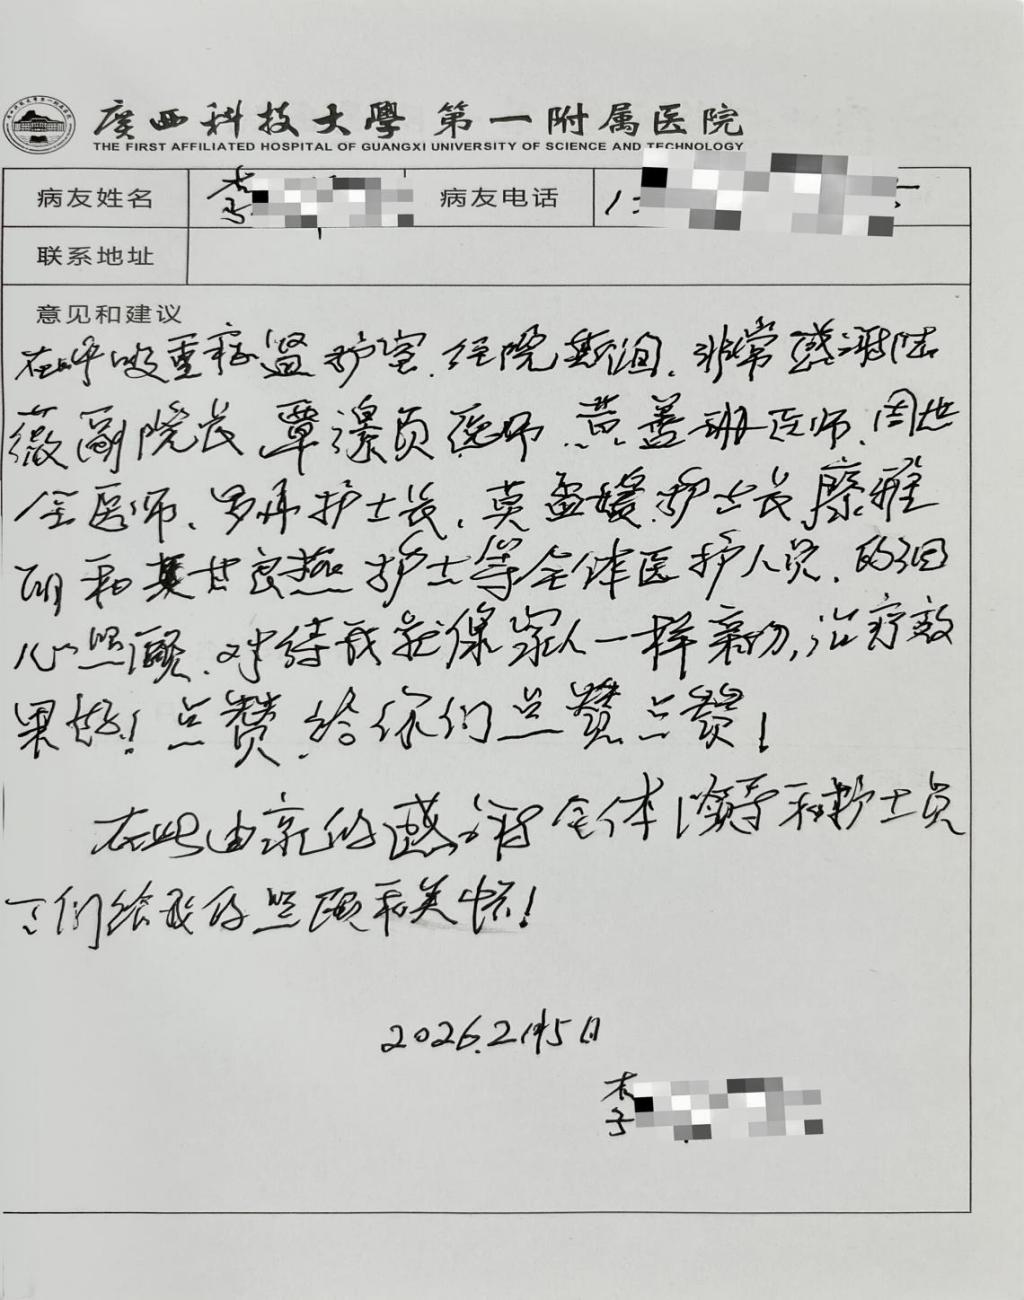 廣西科技大學 第一附属医院
THE FIRST AFFILIATED HOSPITAL OF GUANGXI UNIVERSITY OF SCIENCE AND TECHNOLOGY
病友姓名 李 病友电话 1
联系地址
意见和建议
在呼吸重症监护室,住院期间,非常感谢陆
薇副院长,覃濂贞医师,黄善班医师,周世
全医师、罗丹护士长,莫孟媛护士长廖雅
明和莫甘良燕护士等全体医护人员,的细
心照顾,对待我就像家人一样亲切,治疗效
果好!点赞,给你们点赞点赞!
在此由衷的感谢全体领导和护士员
工们给我的照顾和关怀!
2026.2月5日
李